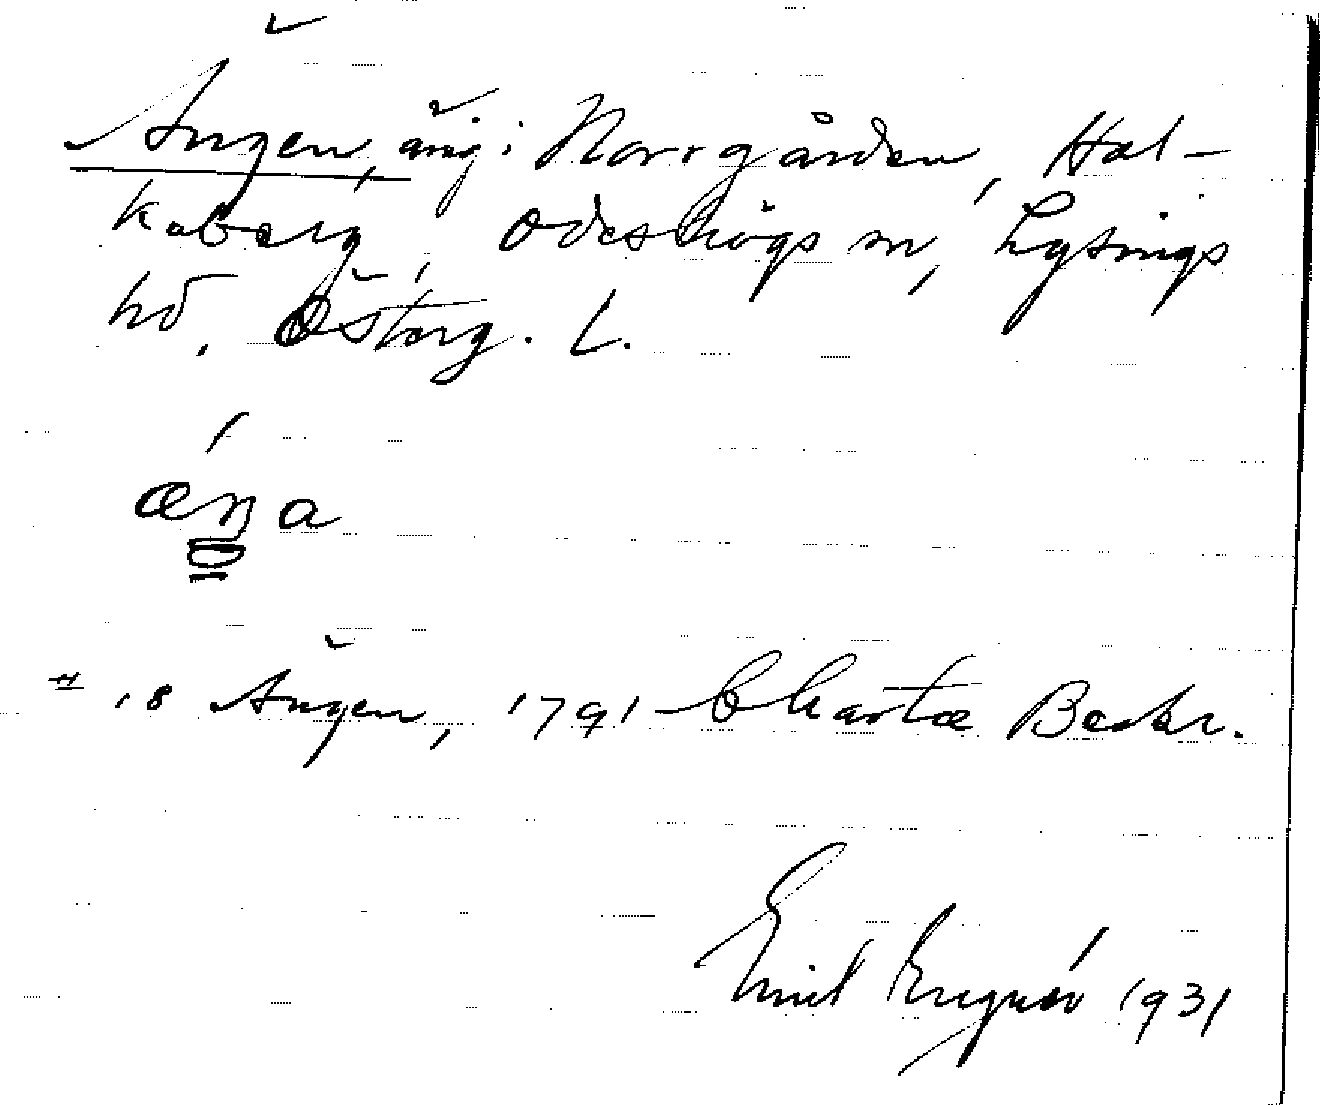 Ängen, äng i Norrgården, Hal-
kaberg, Ödeshögs sn, Lysings
hd, Österg. L.
æŋa
18 Ängen, 1791 Charta Beskr.
Emil Engnér 1931